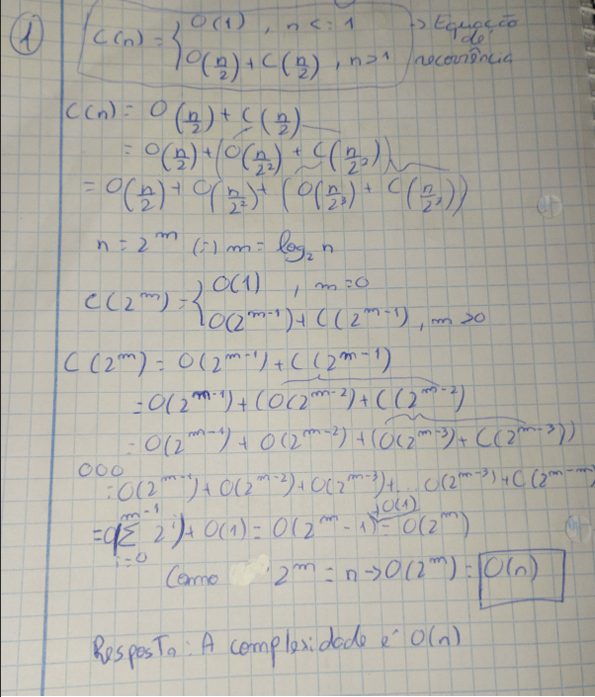 ① C(n) = { O(1) , n <= 1
O(n/2) + C(n/2) , n > 1 } → Equação de recorrência
C(n) = O(n/2) + C(n/2)
= O(n/2) + (O(n/2²) + C(n/2²))
= O(n/2) + O(n/2²) + (O(n/2³) + C(n/2³))
n = 2^m (=) m = log₂ n
C(2^m) = { O(1) , m = 0
O(2^(m-1)) + C(2^(m-1)) , m > 0
C(2^m) = O(2^(m-1)) + C(2^(m-1))
= O(2^(m-1)) + (O(2^(m-2)) + C(2^(m-2))
= O(2^(m-1)) + O(2^(m-2)) + (O(2^(m-3)) + C(2^(m-3)))
ooo
= O(2^(m-1)) + O(2^(m-2)) + O(2^(m-3)) + ... O(2^(m-3)) + C(2^(m-m)
= O(Σ_{i=0}^{m-1} 2^i) + O(1) = O(2^m - 1) + O(1) = O(2^m)
Como 2^m = n → O(2^m) = O(n)
Resposta: A complexidade é O(n)